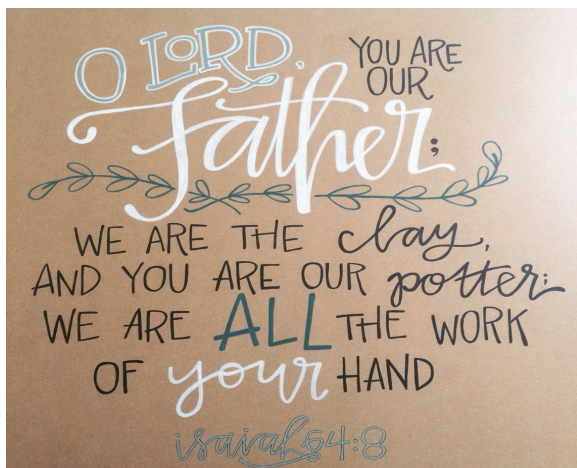 O LORD, YOU ARE
OUR
father;
WE ARE THE clay,
AND YOU ARE OUR potter;
WE ARE ALL THE WORK
OF your HAND
isaiah 64:8